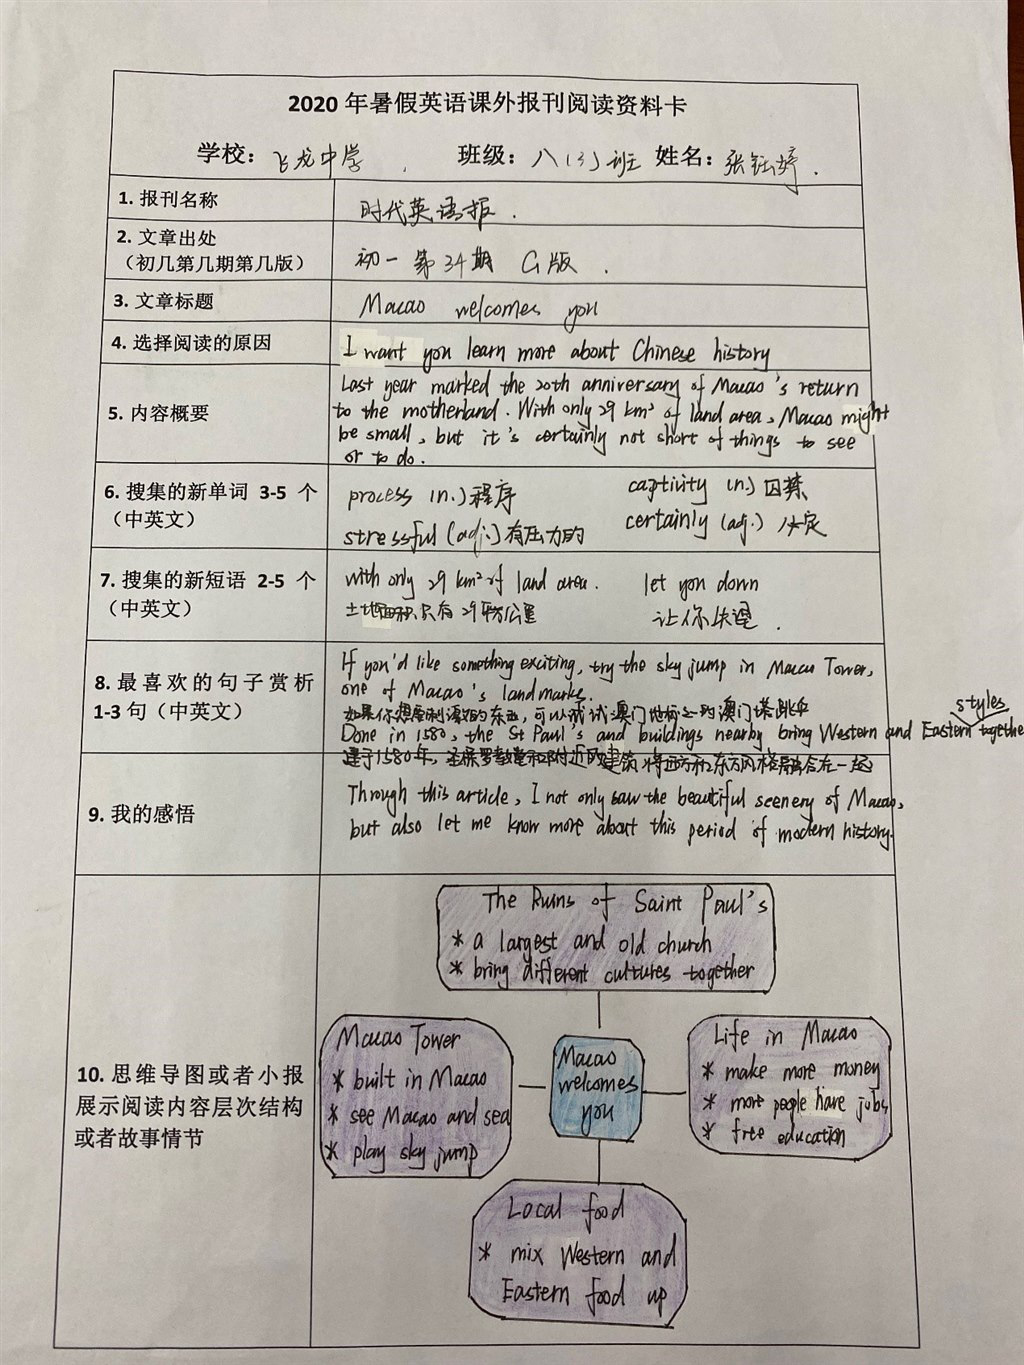 2020 年暑假英语课外报刊阅读资料卡
学校：飞龙中学. 班级：八(3)班 姓名：张钰婷.
1. 报刊名称 时代英语报.
2. 文章出处
（初几第几期第几版） 初一 第34期 G版.
3. 文章标题 Macao welcomes you
4. 选择阅读的原因 I want you learn more about Chinese history
5. 内容概要
Last year marked the 20th anniversary of Macao's return
to the motherland. With only 29 km² of land area, Macao might
be small, but it's certainly not short of things to see
or to do.
6. 搜集的新单词 3-5 个
（中英文）
process (n.) 程序 captivity (n.) 囚禁
stressful (adj.) 有压力的 certainly (adj.) 必定
7. 搜集的新短语 2-5 个
（中英文）
with only 29 km² of land area. let you down
土地面积只有29平方公里 让你失望.
8. 最喜欢的句子赏析
1-3 句（中英文）
If you'd like something exciting, try the sky jump in Macau Tower,
one of Macao's landmarks.
如果你想要刺激的东西，可以试试澳门地标之一的澳门塔跳伞
styles
Done in 1580, the St Paul's and buildings nearby bring Western and Eastern together
建于1580年，圣保罗教堂和附近的建筑将西方和东方风格融合在一起
9. 我的感悟
Through this article, I not only saw the beautiful scenery of Macao,
but also let me know more about this period of modern history.
10. 思维导图或者小报
展示阅读内容层次结构
或者故事情节
The Ruins of Saint Paul's
* a largest and old church
* bring different cultures together
Macao Tower
* built in Macao
* see Macao and sea
* play sky jump
Macao
welcomes
you
Life in Macao
* make more money
* more people have jobs
* free education
Local food
* mix Western and
Eastern food up